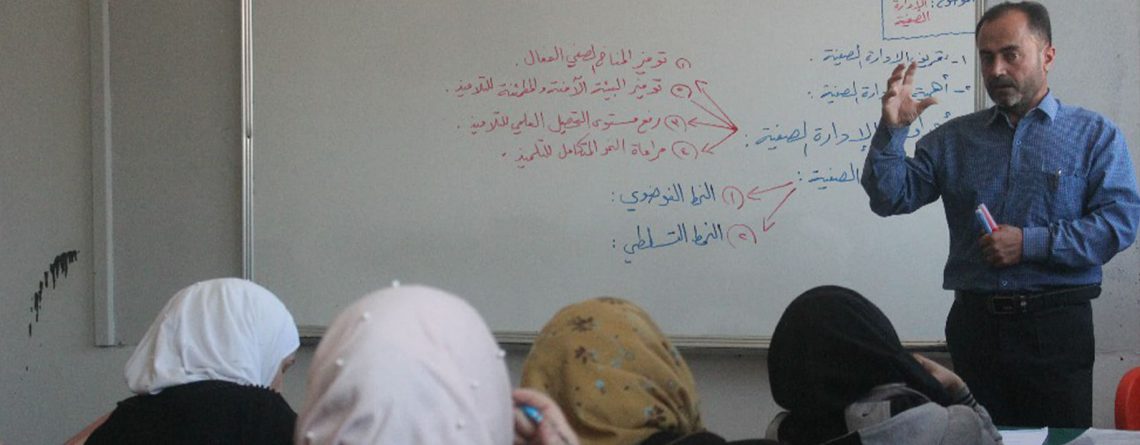 الموضوع: الإدارة
الصفية
١- تعريف الإدارة الصفية.
٢- أهمية الإدارة الصفية.
الإدارة الصفية:
١) توفير المناخ الصفي الفعال.
٢) توفير البيئة الآمنة والمطمئنة للتلاميذ.
٣) رفع مستوى التحصيل العلمي للتلاميذ.
٤) مراعاة النمو المتكامل للتلميذ.
الصفية:
١) النمط الفوضوي:
٢) النمط التسلطي: